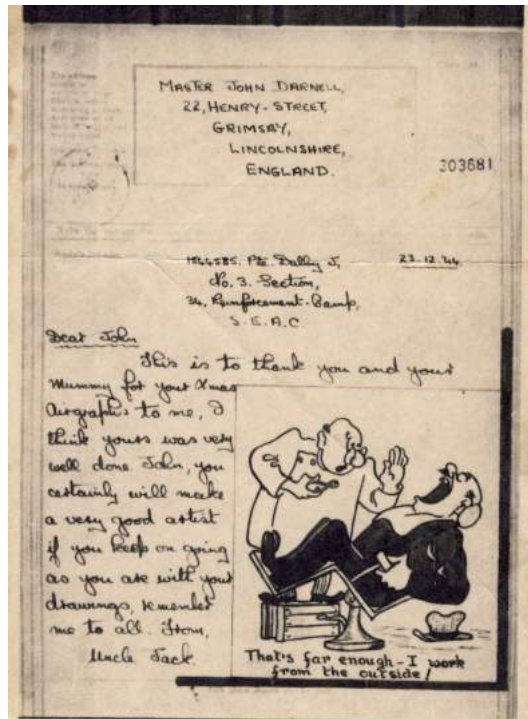 MASTER JOHN DARNELL,
22, HENRY-STREET,
GRIMSBY,
LINCOLNSHIRE,
ENGLAND.
303681
Pte. Dalby J,
23.12.'44
No. 3. Section,
34, Reinforcement-Camp,
S.E.A.C
Dear John
This is to thank you and your
Mummy for your Xmas
Airgraphs to me, I
think yours was very
well done John, you
certainly will make
a very good artist
if you keep on going
as you are with your
drawings, remember
me to all. From,
Uncle Jack.
That's far enough - I work
from the outside!